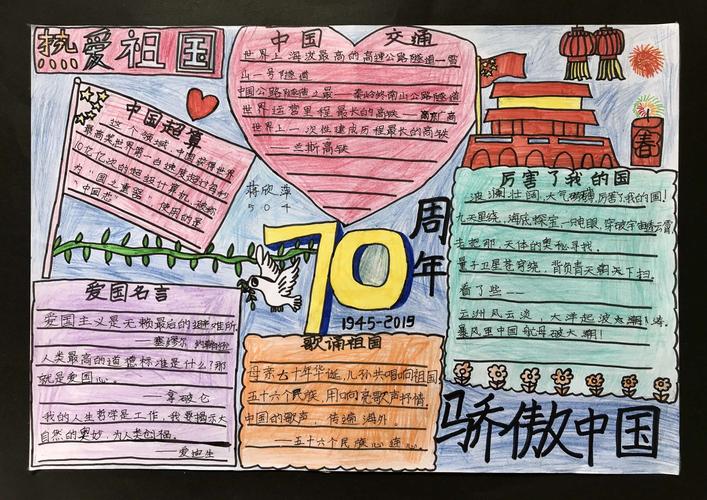 热爱祖国
中国 交通
世界上海拔最高的高速公路隧道—雪
山一号隧道
中国公路隧道之最——秦岭终南山公路隧道
世界运营里程最长的高铁——南京,商
世界上一次性建成历程最长的高铁
——兰斯高铁
中国超算
这个领域,中国获得世界
最高奖世界第一台
10亿亿次的超超计算机,被称
为"国之重器" 使用的是
"中国芯"
蒋欣萍
504
70
周年
1945-2015
春
厉害了我的国
波澜壮阔,大气磅礴,厉害了我的国!
九天星绕,海底探宝,一只电眼,穿破宇宙
去把那 天体的奥秘寻找。
量子卫星苍穹绕,背负青天朝天下扫。
看了些——
云洲风云淡,大洋起波
暴风里中国航母破大潮!
爱国名言
爱国主义是无赖最后的避难所。
——塞缪尔·约翰逊
人类最高的道德标准是什么?那
就是爱国心。
——拿破仑
我的人生哲学是工作,我要揭示大
自然的奥妙,为人类创福。
——爱迪生
歌诵祖国
母亲六十年华诞,儿孙共唱响祖国
五十六个民族,用响亮歌声抒情.
中国的歌声,传遍海外
——五十六个民族心连心。
骄傲中国